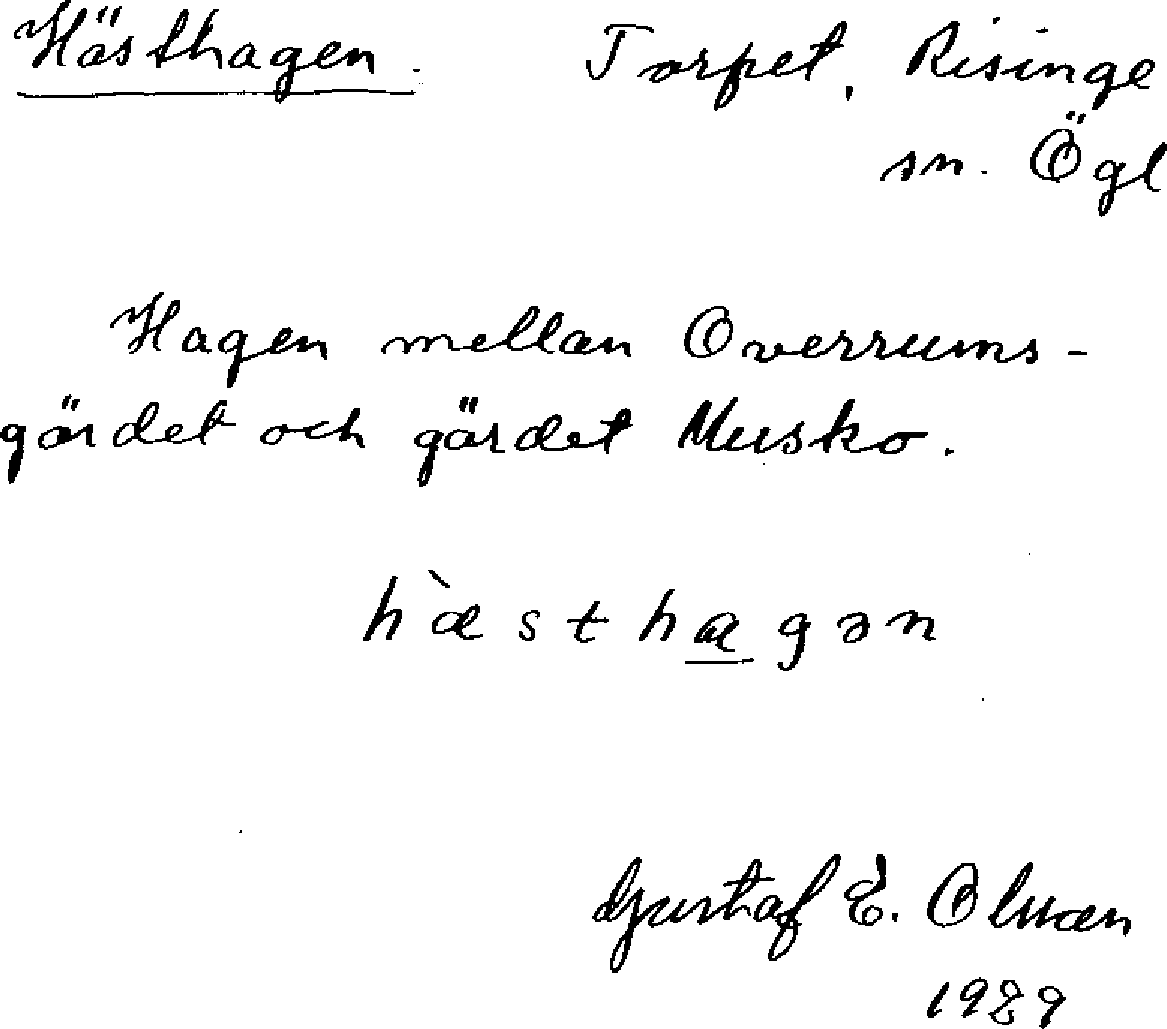 Hästhagen. Torpet, Risinge
sn. Ögl
Hagen mellan Overrums-
gärdet och gärdet Musko.
h`æsthagən
Gustaf E. Olman
1929